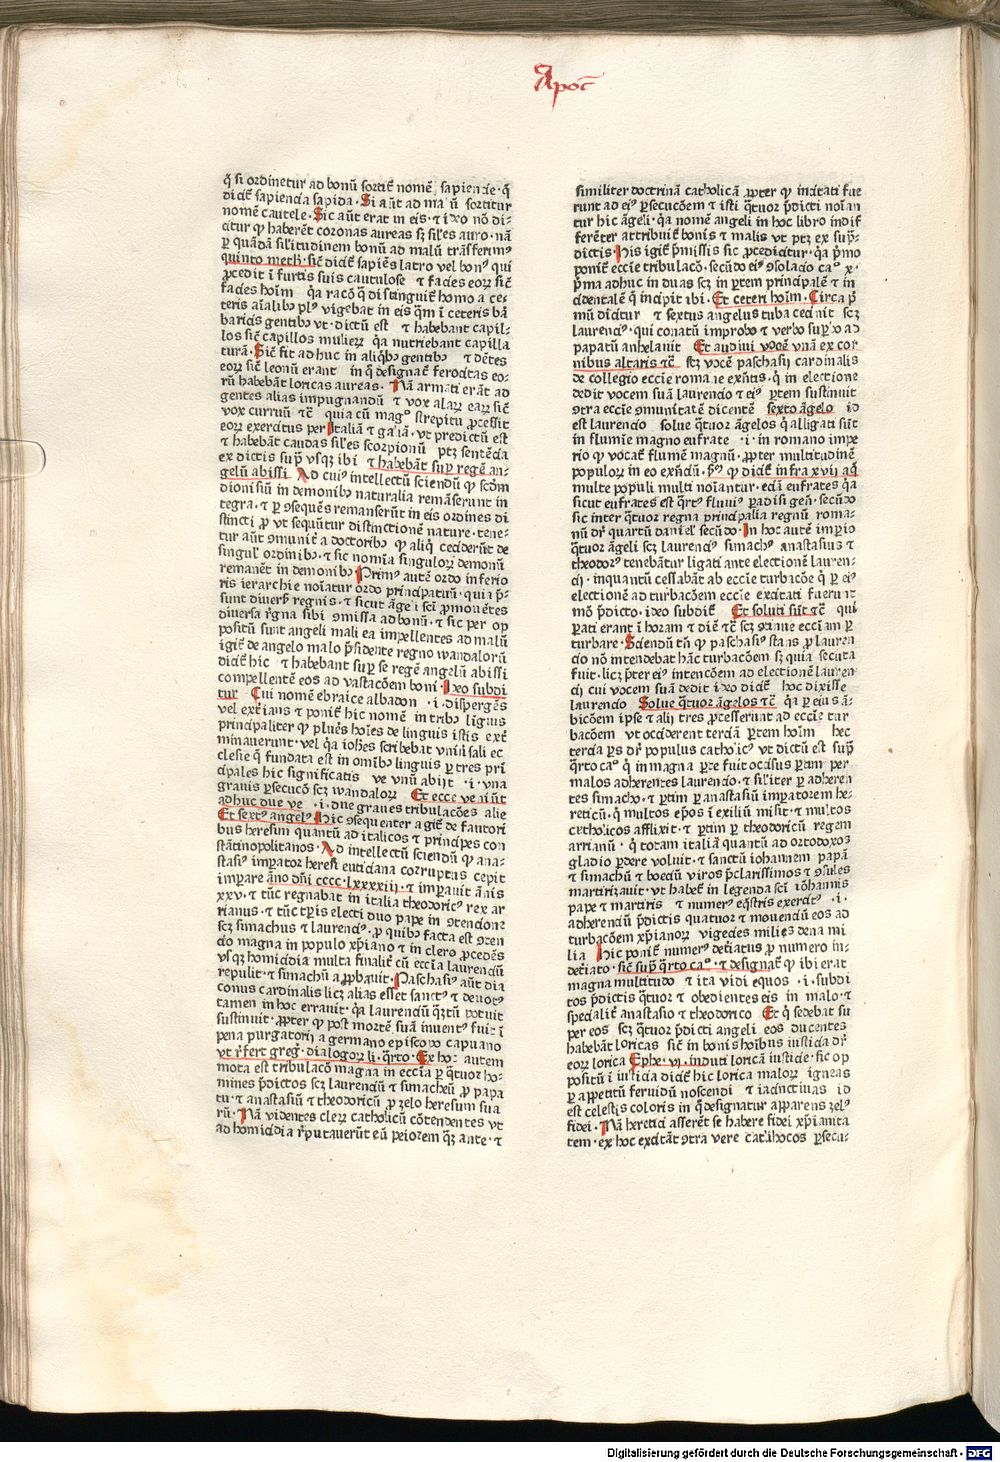 Apoc̄
q̄ si ordinetur ad bonū sortit̄ nomē sapiencie · q̄
dicit̄ sapiencia sapida · Si aūt ad malū sortitur
nomē cautele · Sic aūt erat in eis · ⁊ ideo nō di-
citur ꝙ haberēt coronas aureas sꝫ sil̄es auro · nā
ꝑ quādā sil̄itudinem bonū ad malū trāsferim⁹
quinto meth · sic̄ dicit̄ sapiēs latro vel bon⁹ qui
ꝓcedit ī furtis suis cautulose ⁊ facies eoꝝ sic̄
facies hoīm q̄a racō q̄ distinguit̄ homo a ce-
teris aīalibꝰ pl⁹ vigebat in eis q̄m ī ceteris bā
baricis gentibꝰ vt · dictū est ⁊ habebant capil-
los sic̄ capillos mulieꝝ q̄a nutriebant capilla
turā · Sic̄ fit adhuc in aliq̄bꝰ gentibꝰ ⁊ dētes
eoꝝ sic̄ leonū erant in q̄ designat̄ ferocitas eo-
rū habebāt loricas aureas · Nā armati erāt ad
gentes alias impugnandū ⁊ vox alaꝝ eaꝝ sic̄
vox curruū ⁊c̄ quia cū mag⁰ strepitu ꝓcessit
eoꝝ exercitus per Italiā ⁊ galliā · vt predictū est
⁊ habebāt caudas sil̄es scorpionū ptꝫ sentēcia
ex dictis sup̄ vsqꝫ ibi ⁊ habebāt sup̄ regē an-
gelū abissi Ad cui⁹ intellectū sciendū ꝙ scd̄m
dionisiū in demonibꝰ naturalia remāserunt in
tegra · ⁊ ꝑ ꝯsequēs remanserūt in eis ordines di
stincti ꝓ vt sequūtur distinctionē nature · tene-
tur aūt ꝯmunit̄ a doctoribꝰ ꝙ aliq̄ ceciderūt de
singul̄ ordinibꝰ · ⁊ sic nomīa singuloꝝ demonū
remanēt in demonibꝰ Prim⁹ autē ordo inferio
ris ierarchie noīatur ordo principatuū · quia p̄-
sunt diuers̄ regnis · ⁊ sicut āgeli sc̄i ꝓmouētes
diuersa rēgna sibi ꝯmissa ad bonū · ⁊ sic per op
positū sunt angeli mali ea impellentes ad malū
igit̄ de angelo malo p̄sidente regno wandaloꝝ
dicit̄ hic ⁊ habebant sup̄ se regē angelū abissi
compellentē eos ad vastacōem boni · Ideo subdi
tur Cui nomē ebraice albadon · i · dispergēs
vel exterīans ⁊ ponit̄ hic nomē in tribꝰ liguis
principaliter ꝙ plures hoīes de linguis istis ext̄
minauerunt · vel q̄a ioh̄es scribebat vniū sali ec
clesie q̄ fundata est in omībꝰ linguis ꝑ tres prī
cipales hic significatis ve vnū abijt · i · vna
grauis ꝑsecucō scꝫ wandaloꝝ Et ecce veniūt
adhuc due ve · i · due graues tribulacōes alie
Et sext⁹ angel⁹ Hic ꝯsequenter agit̄ de fautori
bus heresum quantū ad italicos ⁊ principes con
stātinopolitanos · Ad intellectū sciendū ꝙ ana-
stasi⁹ imꝑator heresi euticiana corruptus cepit
imꝑare āno dn̄i cccc · lxxxxiij · ⁊ imꝑauit ānis
xxv · ⁊ tūc regnabat in italia theodoric⁹ rex ar
rianus · ⁊ tūc tꝑis electi duo pape in ꝯtencione
scꝫ simachus ⁊ laurenci⁹ · ꝓ quibꝰ facta est ꝯten
cio magna in populo xp̄iano ⁊ in clero ꝓcedēs
vsqꝫ homicidia multa finalit̄ cū ecc̄ia laurenciū
repulit · ⁊ simachū aꝓbauit · Paschasi⁹ aūt dia
conus cardinalis licꝫ alias esset sanct⁹ ⁊ deuot⁹
tamen in hoc errauit · q̄a laurenciū q̄ꝫtū potuit
sustinuit · ꝓpter ꝙ post mortē suā inuent⁹ fuit ī
pena purgatorij a germano episcopo capuano
vt r̄fert greḡ · dialogoꝝ li · q̄rto · Ex hoc autem
mota est tribulacō magna in ecc̄ia ꝑ q̄tuor ho-
mines p̄dictos scꝫ laurenciū ⁊ simachū ꝓ papa
tu · ⁊ anastasiū ⁊ theodoricū ꝓ zelo heresum sua
rū · Nā videntes cleꝝ catholicū cōtendentes vt
ad homicidia r̄putauerūt eū peiorem qꝫ ante · ⁊
similiter doctrinā catholicā ꝓpter ꝙ incitati fue
runt ad ei⁹ ꝑsecucōem ⁊ isti q̄tuor p̄dicti noīan
tur hic āgeli · q̄a nomē angeli in hoc libro indif
ferēter attribuit̄ bonis ⁊ malis vt ptꝫ ex sup̄-
dictis · His igit̄ p̄missis sic ꝓceditur · q̄a p̄mo
ponit̄ eccīe tribulacō · secūdo ei⁹ ꝯsolacio ca⁰ x ·
p̄ma adhuc in duas scꝫ in ꝑtem principalē ⁊ in
cidentalē q̄ incipit ibi · Et ceteri hoīm · Circa p̄
mū dicitur ⁊ sextus angelus tuba cecinit scꝫ
laurenci⁹ · qui conatū improbo ⁊ verbo sup̄bo ad
papatū anhelauit Et audiui vocē vnā ex cor
nibus altaris ⁊c̄ scꝫ vocē paschasij cardinalis
de collegio eccīe romane exn̄tis · q̄ in electione
dedit vocem suā laurencio ⁊ ei⁹ ꝑtem sustinuit
ꝯtra eccīe ꝯmunitatē dicentē sexto āgelo id
est laurencio solue q̄tuor āgelos q̄ alligati sūt
in flumīe magno eufrate · i · in romano impe
rio ꝙ vocat̄ flumē magnū · ꝓpter multitudinē
populoꝝ in eo exn̄ciū · p̄⁹ ꝙ dicit̄ infra xvij aq̄
multe populi multi noīantur · eciā eufrates q̄a
sicut eufrates est q̄rt⁹ fluui⁹ ꝑadisi gen̄ · secūdo
sic inter q̄tuor regna principalia regnū roma-
nū dr̄ quartū daniel̄ secūdo · In hoc autē imꝑio
q̄tuor āgeli scꝫ laurenci⁹ simach⁹ anastasius ⁊
theodor⁹ tenebātur ligati ante electionē lauren-
cij · inquantū cessabāt ab eccīe turbacōe q̄ ꝑ ei⁹
electionē ad turbacōem eccīe excitati fuerunt
mō p̄dicto · ideo subdit̄ Et soluti sūt ⁊c̄ qui
ꝑati erant ī horam ⁊ diē ⁊c̄ scꝫ ꝯtinue ecciam ꝑ
turbare · Sciendū tn̄ ꝙ paschasi⁹ stans ꝓ lauren
cio nō intendebat hāc turbacōem sꝫ quia secuta
fuit · licꝫ p̄ter ei⁹ intencōem ad electionē lauren
cij cui vocem suā dedit ideo dicit̄ hoc dixisse
laurencio Solue q̄tuor āgelos ⁊c̄ q̄a ꝑ eius ā-
bicōem ipse ⁊ alij tres ꝓcesserunt ad eccīe tur
bacōem vt occiderent terciā ꝑtem hoīm hec
tercia ꝑs dr̄ populus catholic⁹ vt dictū est sup̄
q̄rto ca⁰ q̄ in magna ꝑte fuit occisus ꝑtim per
malos adherentes laurencio · ⁊ sil̄iter ꝑ adheren
tes simacho · ⁊ ꝑtim ꝑ anastasiū imꝑatorem he-
reticū · q̄ multos ep̄os ī exiliū misit · ⁊ multos
catholicos afflixit · ⁊ ꝑtim ꝑ theodoricū regem
arrianū · q̄ totam italiā quantū ad ortodoxos
gladio ꝑdere voluit · ⁊ sanctū iohannem papā
⁊ simachū ⁊ boeciū viros p̄clarissimos ⁊ ꝯsules
martirizauit · vt habet̄ in legenda sc̄i iōhannis
pape ⁊ martiris ⁊ numer⁹ eq̄stris exercit⁹ · i ·
adherenciū p̄dictis quatuor ⁊ mouenciū eos ad
turbacōem xp̄ianoꝝ vigecies milies dena mi
lia Hic ponit̄ numer⁹ det̄iatus ꝓ numero in-
det̄iato · sic̄ sup̄ q̄rto ca⁰ · ⁊ designat̄ ꝙ ibi erat
magna multitudo ⁊ ita vidi equos · i · subdi
tos p̄dictis q̄tuor ⁊ obedientes eis in malo · ⁊
specialit̄ anastasio ⁊ theodorico Et q̄ sedebāt su
per eos scꝫ q̄tuor p̄dicti angeli eos ducentes
habebāt loricas sic̄ in bonis hoībus iusticia dr̄
eoꝝ lorica Ephe · vi · induti loricā iusticie · sic op
positū ī iusticia dicit̄ hic lorica maloꝝ igneas
ꝑ appetitū feruidū noscendi ⁊ iacinctinas id
est celestis coloris in q̄ designatur apparens zel⁹
fidei · Nā heretici asserēt se habere fidei xp̄ianita
tem · ex hoc excitāt ꝯtra vere catihocos ꝑsecu-
Digitalisierung gefördert durch die Deutsche Forschungsgemeinschaft - DFG